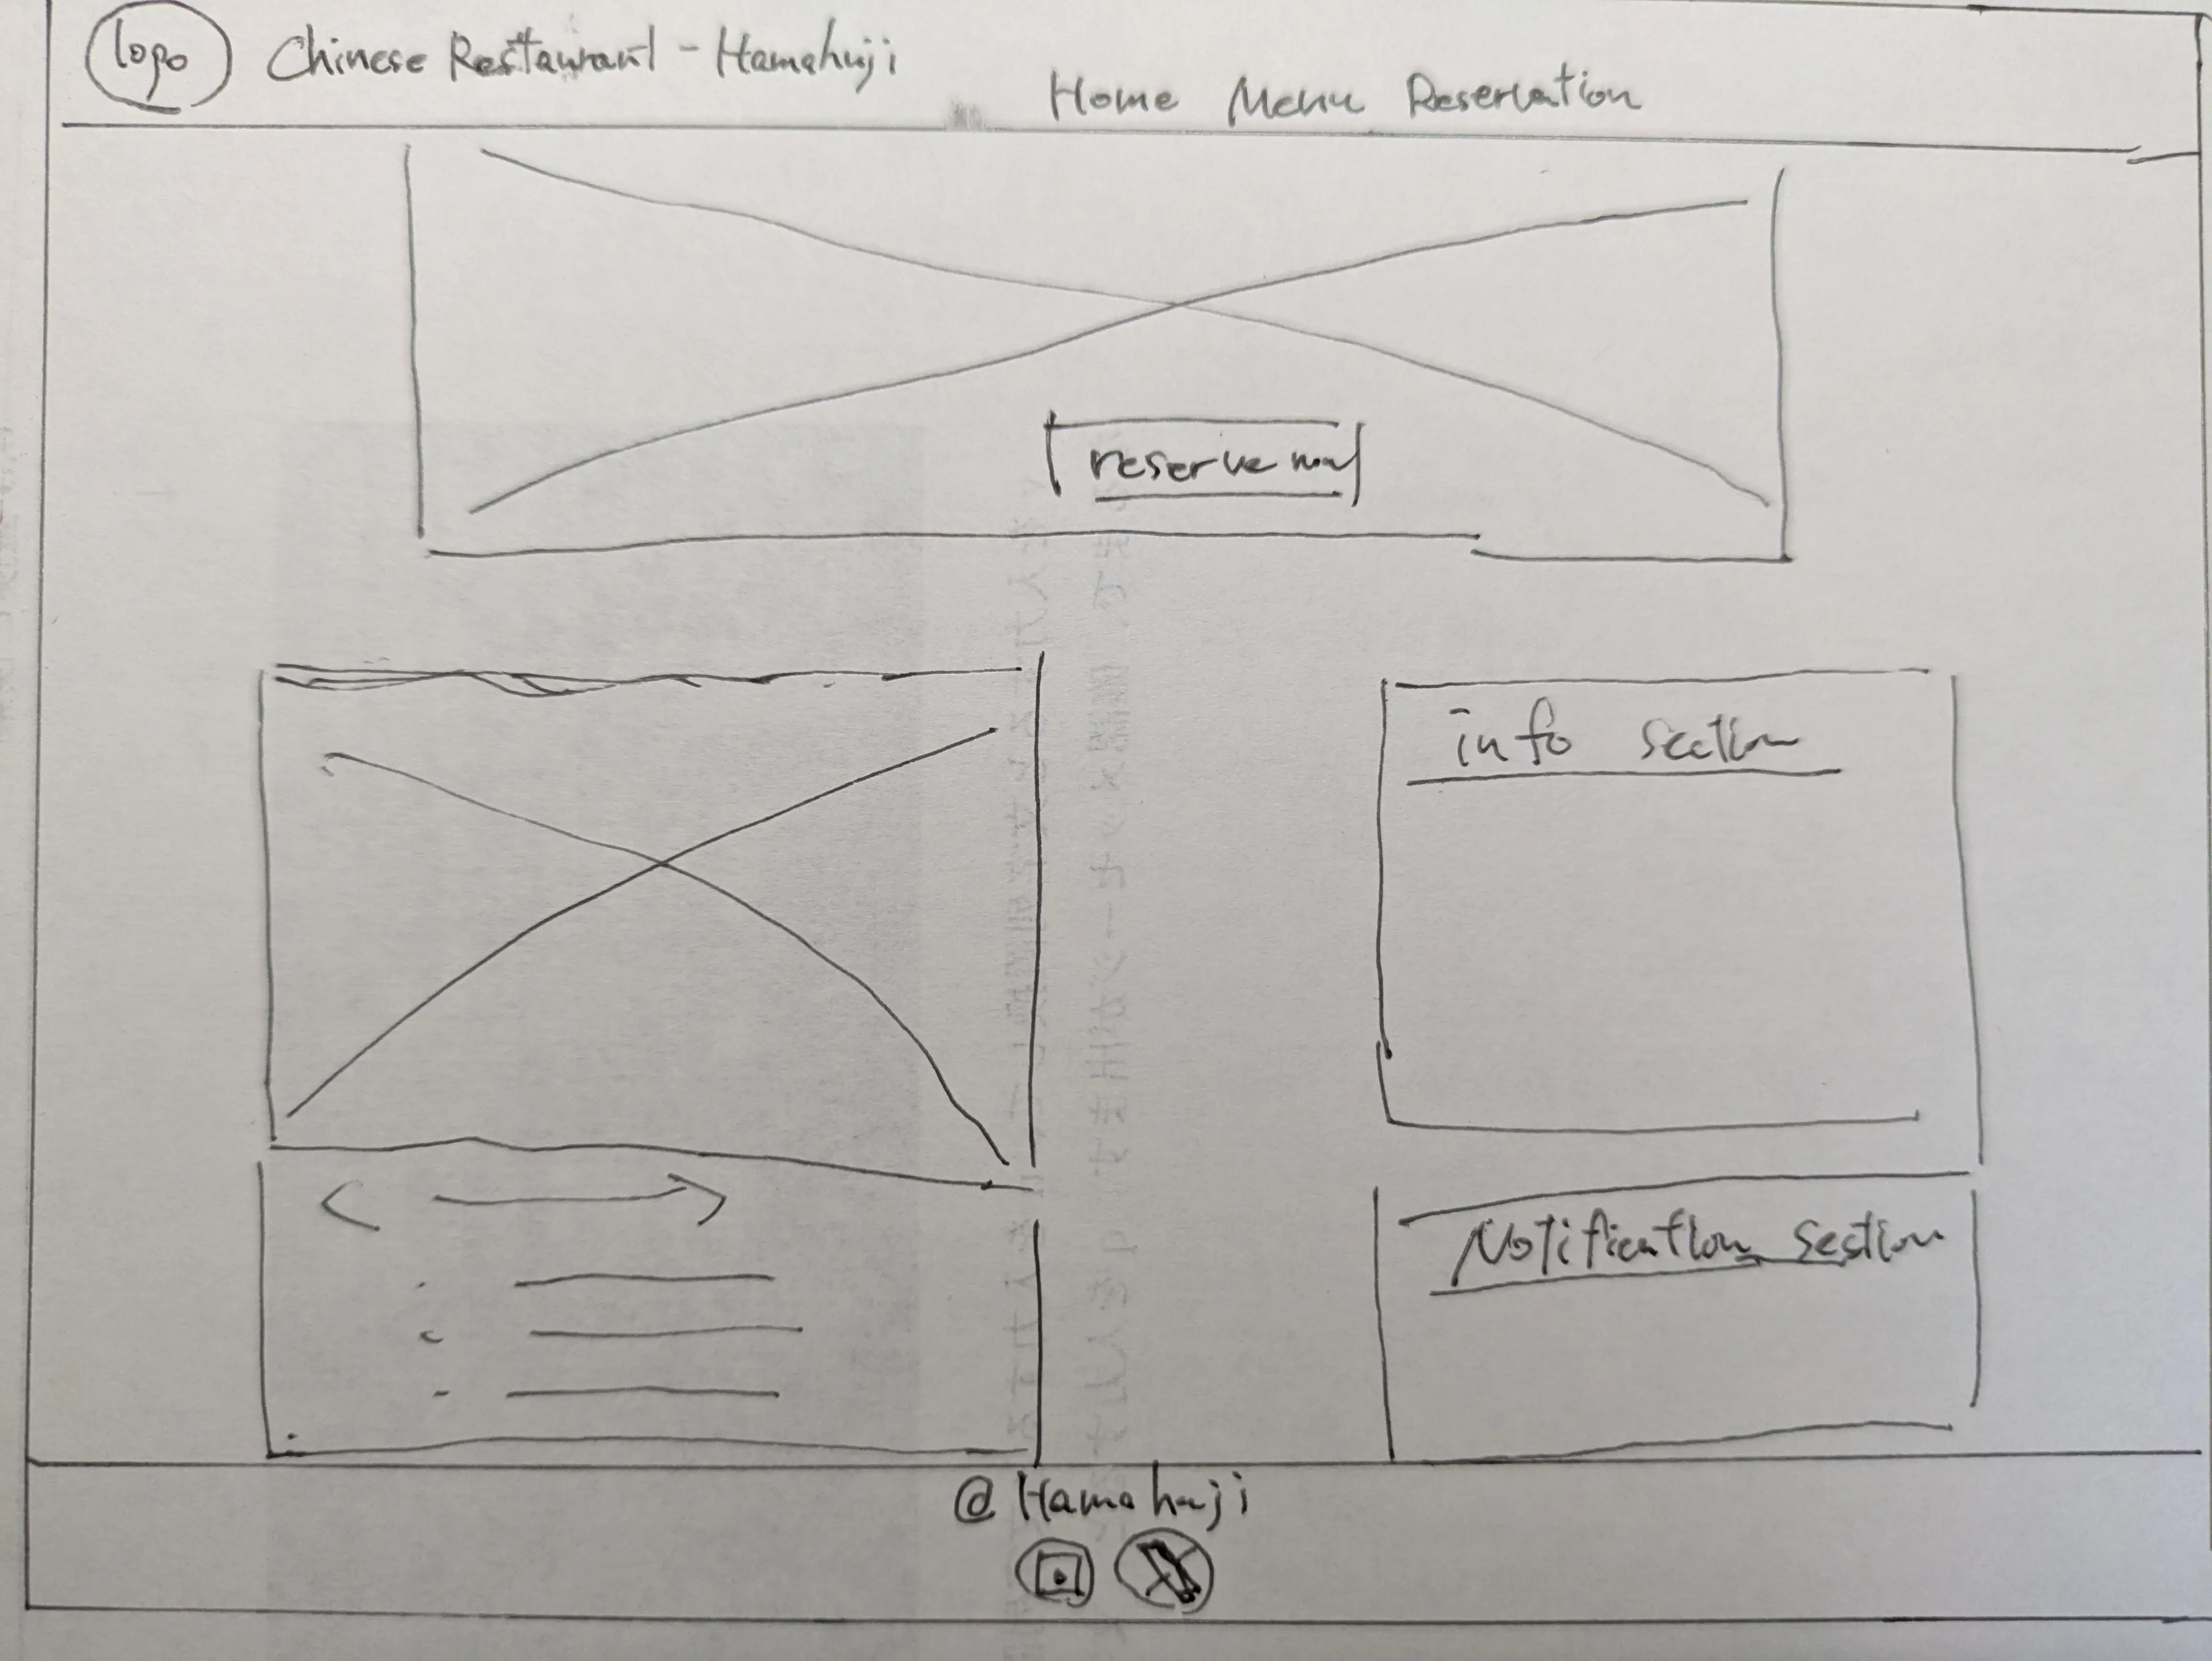 logo
Chinese Restaurant - Hamahuji
Home Menu Reservation
reserve now
info section
Notification section
@Hamahuji